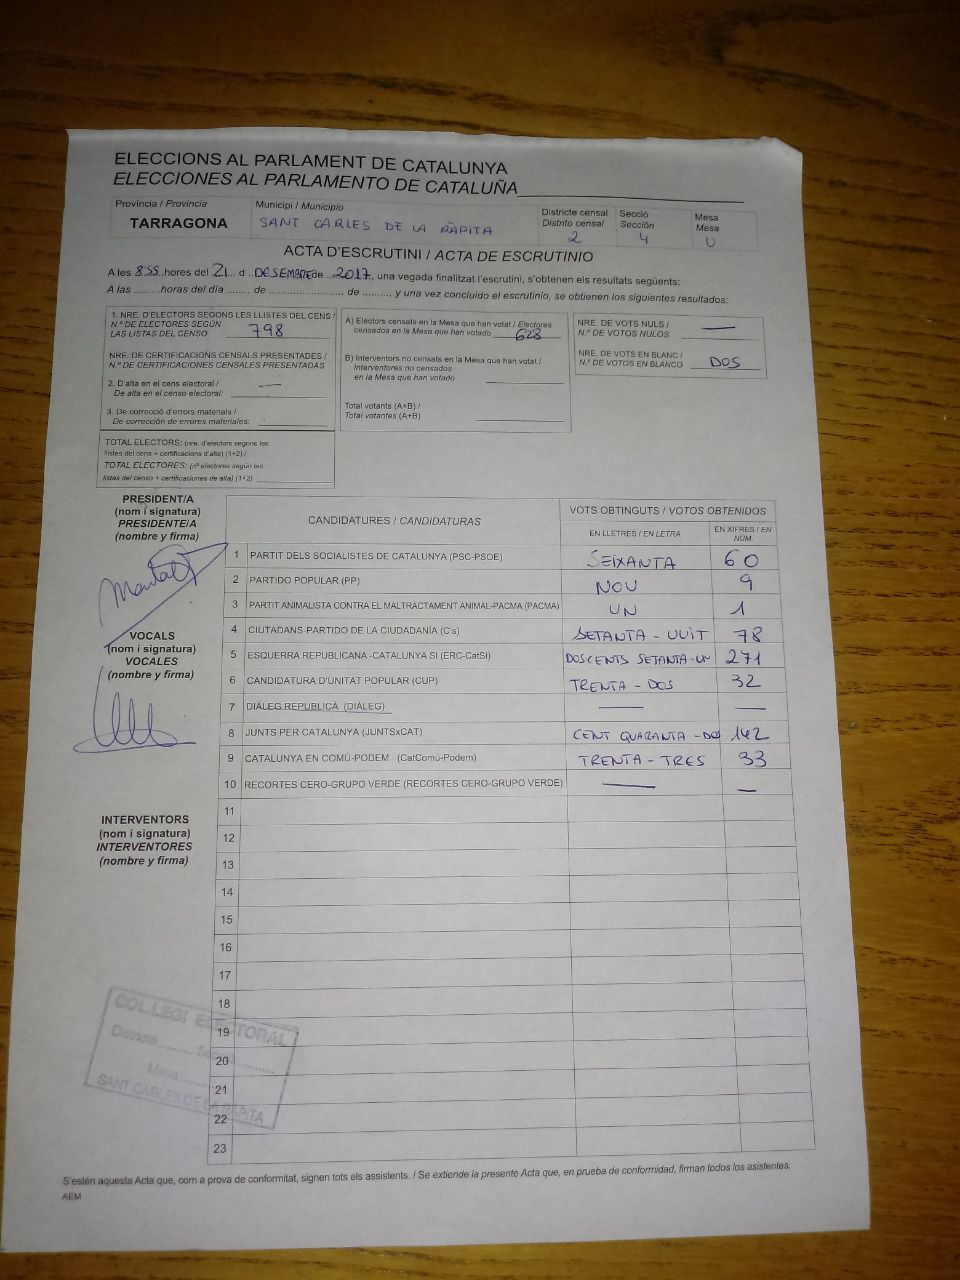 ELECCIONS AL PARLAMENT DE CATALUNYA
ELECCIONES AL PARLAMENTO DE CATALUÑA
Província / Provincia
TARRAGONA
Municipi / Municipio
SANT CARLES DE LA RÀPITA
Districte censal
Distrito censal
2
Secció
Sección
4
Mesa
Mesa
U
ACTA D'ESCRUTINI / ACTA DE ESCRUTINIO
A les 8:55 hores del 21 d DESEMBRE de 2017, una vegada finalitzat l'escrutini, s'obtenen els resultats següents:
A las .........horas del día ........ de ......................... de ........., y una vez concluido el escrutinio, se obtienen los siguientes resultados:
1. NRE. D'ELECTORS SEGONS LES LLISTES DEL CENS /
N.º DE ELECTORES SEGÚN
LAS LISTAS DEL CENSO 798
NRE. DE CERTIFICACIONS CENSALS PRESENTADES /
N.º DE CERTIFICACIONES CENSALES PRESENTADAS
2. D'alta en el cens electoral / —
De alta en el censo electoral:
3. De correcció d'errors materials /
De corrección de errores materiales:
TOTAL ELECTORS: (nre. d'electors segons les
llistes del cens + certificacions d'alta) (1+2) /
TOTAL ELECTORES: (nº electores según las
listas del censo + certificaciones de alta) (1+2)
A) Electors censats en la Mesa que han votat / Electores
censados en la Mesa que han votado 628
B) Interventors no censats en la Mesa que han votat /
Interventores no censados
en la Mesa que han votado
Total votants (A+B) /
Total votantes (A+B)
NRE. DE VOTS NULS /
N.º DE VOTOS NULOS —
NRE. DE VOTS EN BLANC /
N.º DE VOTOS EN BLANCO DOS
PRESIDENT/A
(nom i signatura)
PRESIDENTE/A
(nombre y firma)
VOCALS
(nom i signatura)
VOCALES
(nombre y firma)
INTERVENTORS
(nom i signatura)
INTERVENTORES
(nombre y firma)
CANDIDATURES / CANDIDATURAS
VOTS OBTINGUTS / VOTOS OBTENIDOS
EN LLETRES / EN LETRA
EN XIFRES / EN
NÚM.
1 PARTIT DELS SOCIALISTES DE CATALUNYA (PSC-PSOE) SEIXANTA 60
2 PARTIDO POPULAR (PP) NOU 9
3 PARTIT ANIMALISTA CONTRA EL MALTRACTAMENT ANIMAL-PACMA (PACMA) UN 1
4 CIUTADANS-PARTIDO DE LA CIUDADANÍA (C's) SETANTA-VUIT 78
5 ESQUERRA REPUBLICANA -CATALUNYA SI (ERC-CatSí) DOSCENTS SETANTA-UN 271
6 CANDIDATURA D'UNITAT POPULAR (CUP) TRENTA-DOS 32
7 DIÀLEG REPUBLICÀ (DIÀLEG) — —
8 JUNTS PER CATALUNYA (JUNTSxCAT) CENT QUARANTA-DOS 142
9 CATALUNYA EN COMÚ-PODEM (CatComú-Podem) TRENTA-TRES 33
10 RECORTES CERO-GRUPO VERDE (RECORTES CERO-GRUPO VERDE) — —
11
12
13
14
15
16
17
18
19
20
21
22
23
COL.LEGI ELECTORAL
Districte........... Secció...........
Mesa...........
SANT CARLES DE LA RÀPITA
S'estén aquesta Acta que, com a prova de conformitat, signen tots els assistents. / Se extiende la presente Acta que, en prueba de conformidad, firman todos los asistentes.
AEM